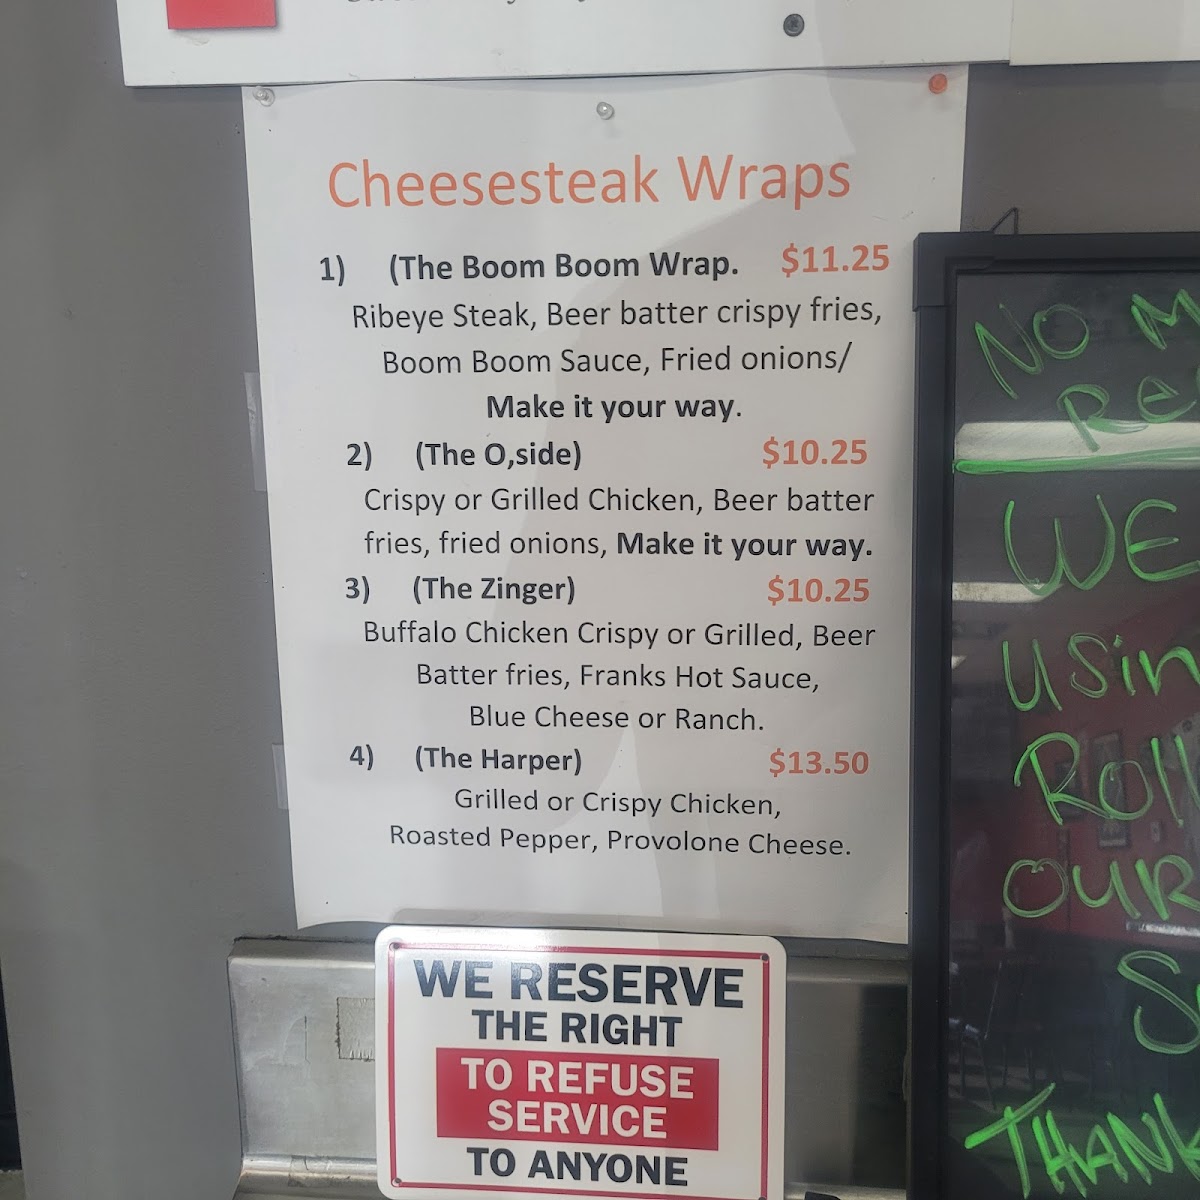 Cheesesteak Wraps
1) (The Boom Boom Wrap. $11.25
Ribeye Steak, Beer batter crispy fries,
Boom Boom Sauce, Fried onions/
Make it your way.
2) (The O,side) $10.25
Crispy or Grilled Chicken, Beer batter
fries, fried onions, Make it your way.
3) (The Zinger) $10.25
Buffalo Chicken Crispy or Grilled, Beer
Batter fries, Franks Hot Sauce,
Blue Cheese or Ranch.
4) (The Harper) $13.50
Grilled or Crispy Chicken,
Roasted Pepper, Provolone Cheese.
WE RESERVE
THE RIGHT
TO REFUSE
SERVICE
TO ANYONE
NO
WE
OUR
THANK